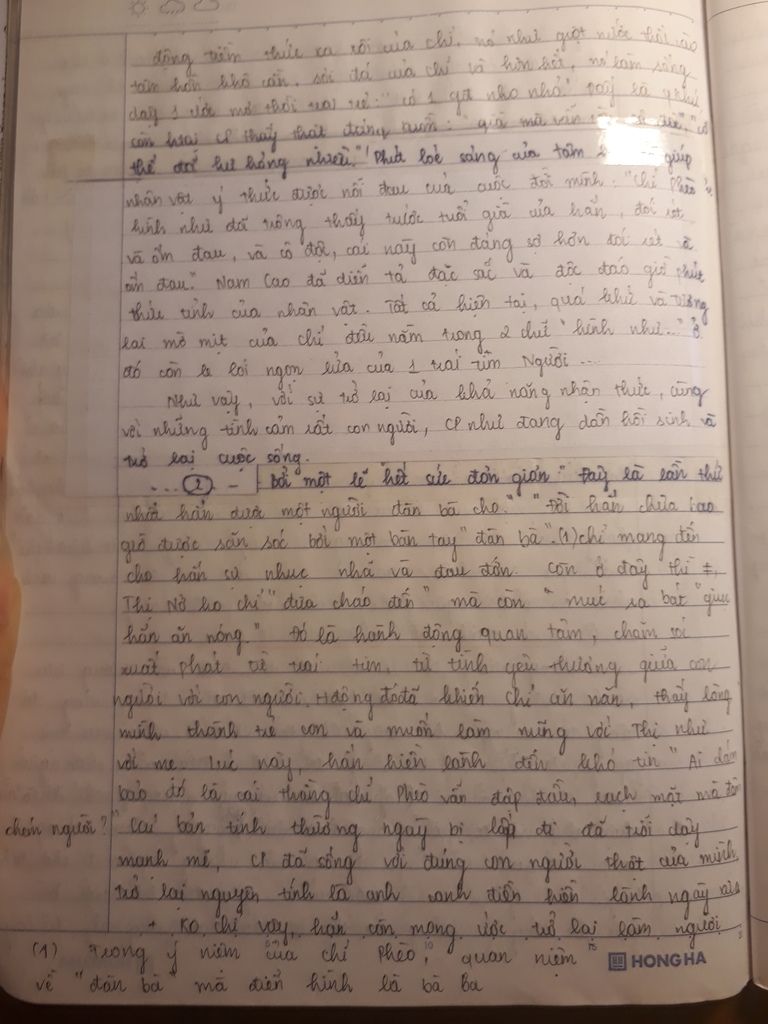 động tiềm thức xa xôi của chí. nó như giọt nước thôi vào
tâm hồn khô cằn, sỏi đá của chí và hơn hết, nó làm sống
dậy 1 ước mơ thời trai trẻ: "có 1 gđ nho nhỏ." Đây là
còn hơn CP thấy thật đáng buồn: "già mà vẫn
thể đã hư hỏng nhiều." Phút loé sáng của tâm giúp
nhân vật ý thức được nỗi đau của cuộc đời mình: "Chí Phèo
hình như đã trông thấy trước tuổi già của hắn, đói rét
và ốm đau, và cô độc, cái này còn đáng sợ hơn đói rét và
ốm đau." Nam Cao đã diễn tả đặc sắc và độc đáo giờ phút
thức tỉnh của nhân vật. Tất cả hiện tại, quá khứ và tương
lai mờ mịt của chí đều nằm trong 2 chữ "hình như..." ở
đó còn le lói ngọn lửa của 1 trái tim Người ...
Như vậy, với sự trở lại của khả năng nhận thức, cùng
với những tình cảm rất con người, CP như đang dần hồi sinh và
trở lại cuộc sống.
... 2 - Bởi một lẽ hết sức đơn giản: "Đây là lần thứ
nhất hắn được một người đàn bà cho." "Đời hắn chưa bao
giờ được săn sóc bởi một bàn tay "đàn bà". (1) chỉ mang đến
cho hắn sự nhục nhã và đau đớn. Còn ở đây thì ≠,
Thị Nở ko chỉ "đưa cháo đến" mà còn "múc ra bát "giục
hắn ăn nóng." Đó là hành động quan tâm, chăm sóc
xuất phát từ trái tim, từ tình yêu thương giữa con
người với con người. Hđộng đó đã khiến chí ăn năn, thấy lòng
mình thành trẻ con và muốn làm nũng với Thị như
với mẹ. Lúc này, hắn hiền lành đến khó tin "Ai dám
bảo đó là cái thằng chí Phèo vẫn đập đầu, rạch mặt mà đâm
chém người?" Cái bản tính thường ngày bị lấp đi đã trỗi dậy
mạnh mẽ, CP đã sống với đúng con người thật của mình,
trở lại nguyên tính là anh canh điền hiền lành ngày xưa
+ Ko chỉ vậy, hắn còn mong ước trở lại làm người
(1) Trong ý niệm của chí Phèo, quan niệm
về "đàn bà" mà điển hình là bà ba
HONG HA